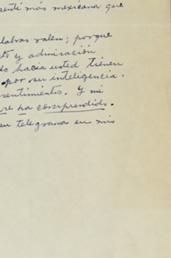 sentí más mexicana que
labras valen; porque
to y admiración
do hacia usted tienen
por su inteligencia.
sentimientos. Y mi
re ha comprendido.
un telegrama en mis